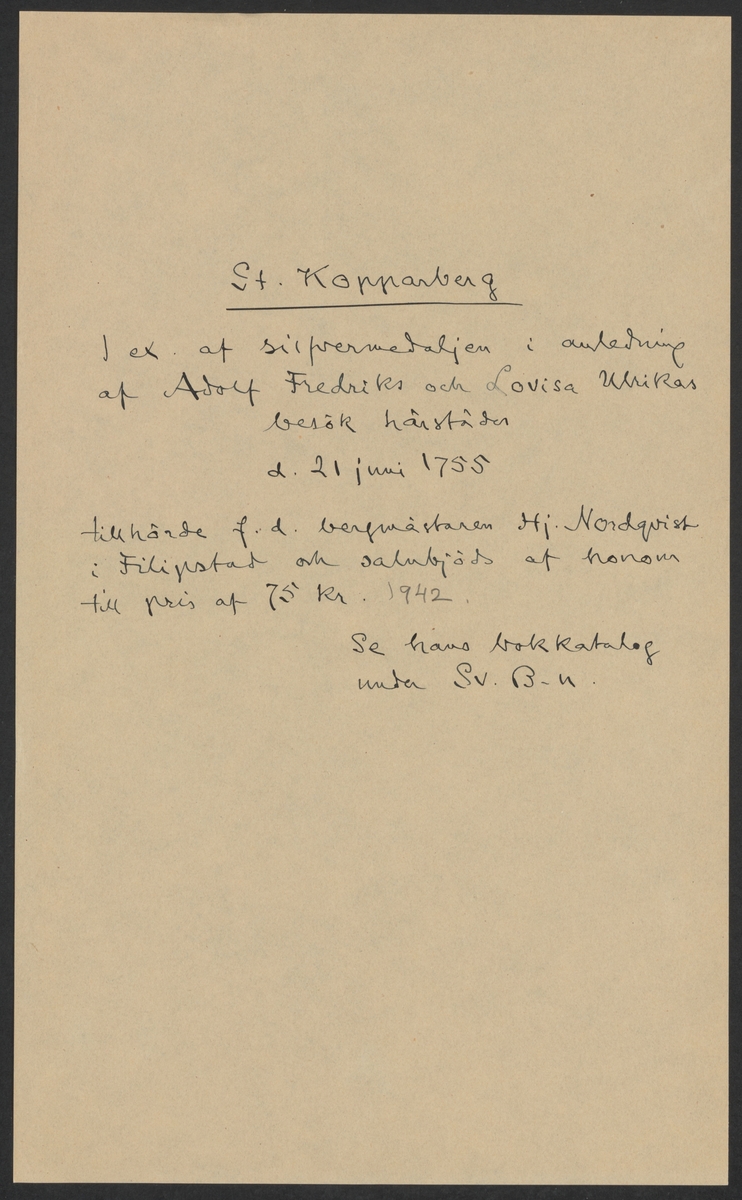 St. Kopparberg
1 ex. af silfvermedaljen i anledning
af Adolf Fredriks och Lovisa Ulrikas
besök härstädes
d. 21 juni 1755
tillhörde f.d. bergmästaren Hj. Nordqvist
i Filipstad och salubjöds af honom
till pris af 75 kr. 1942.
Se hans bokkatalog
under Sv. B-n.